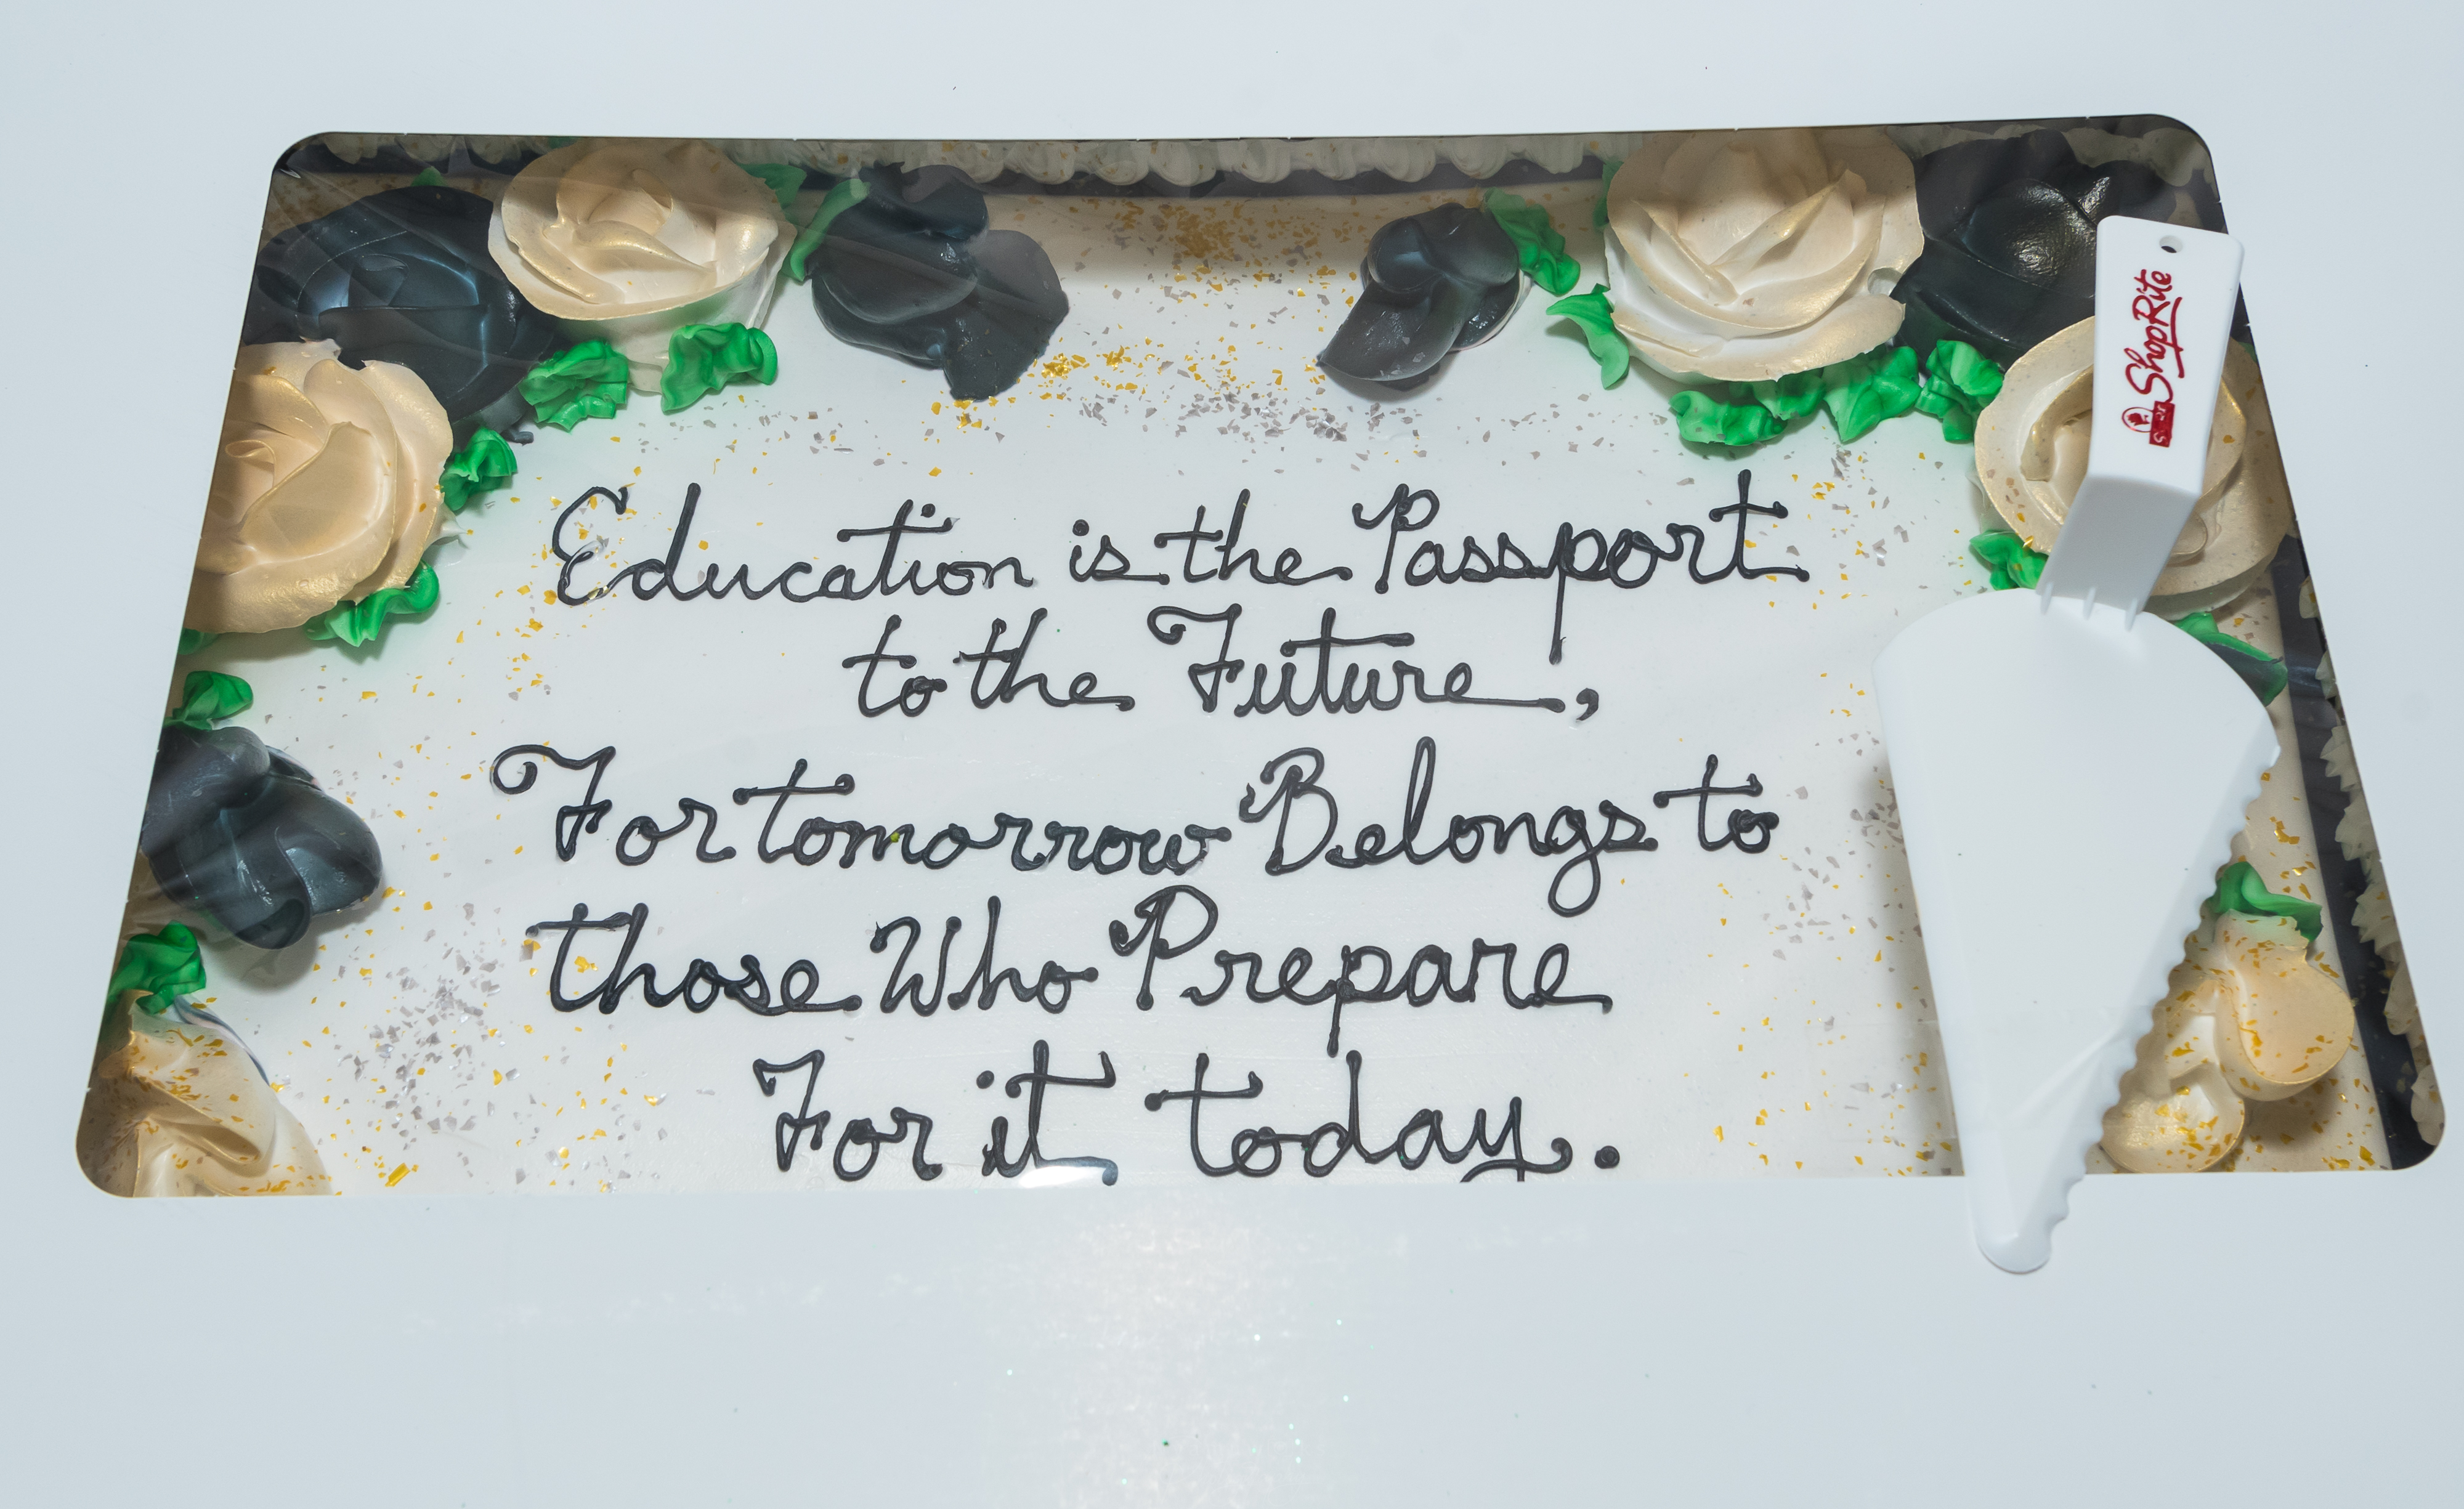 Education is the Passport
to the Future,
For tomorrow Belongs to
those Who Prepare
For it today.
ShopRite